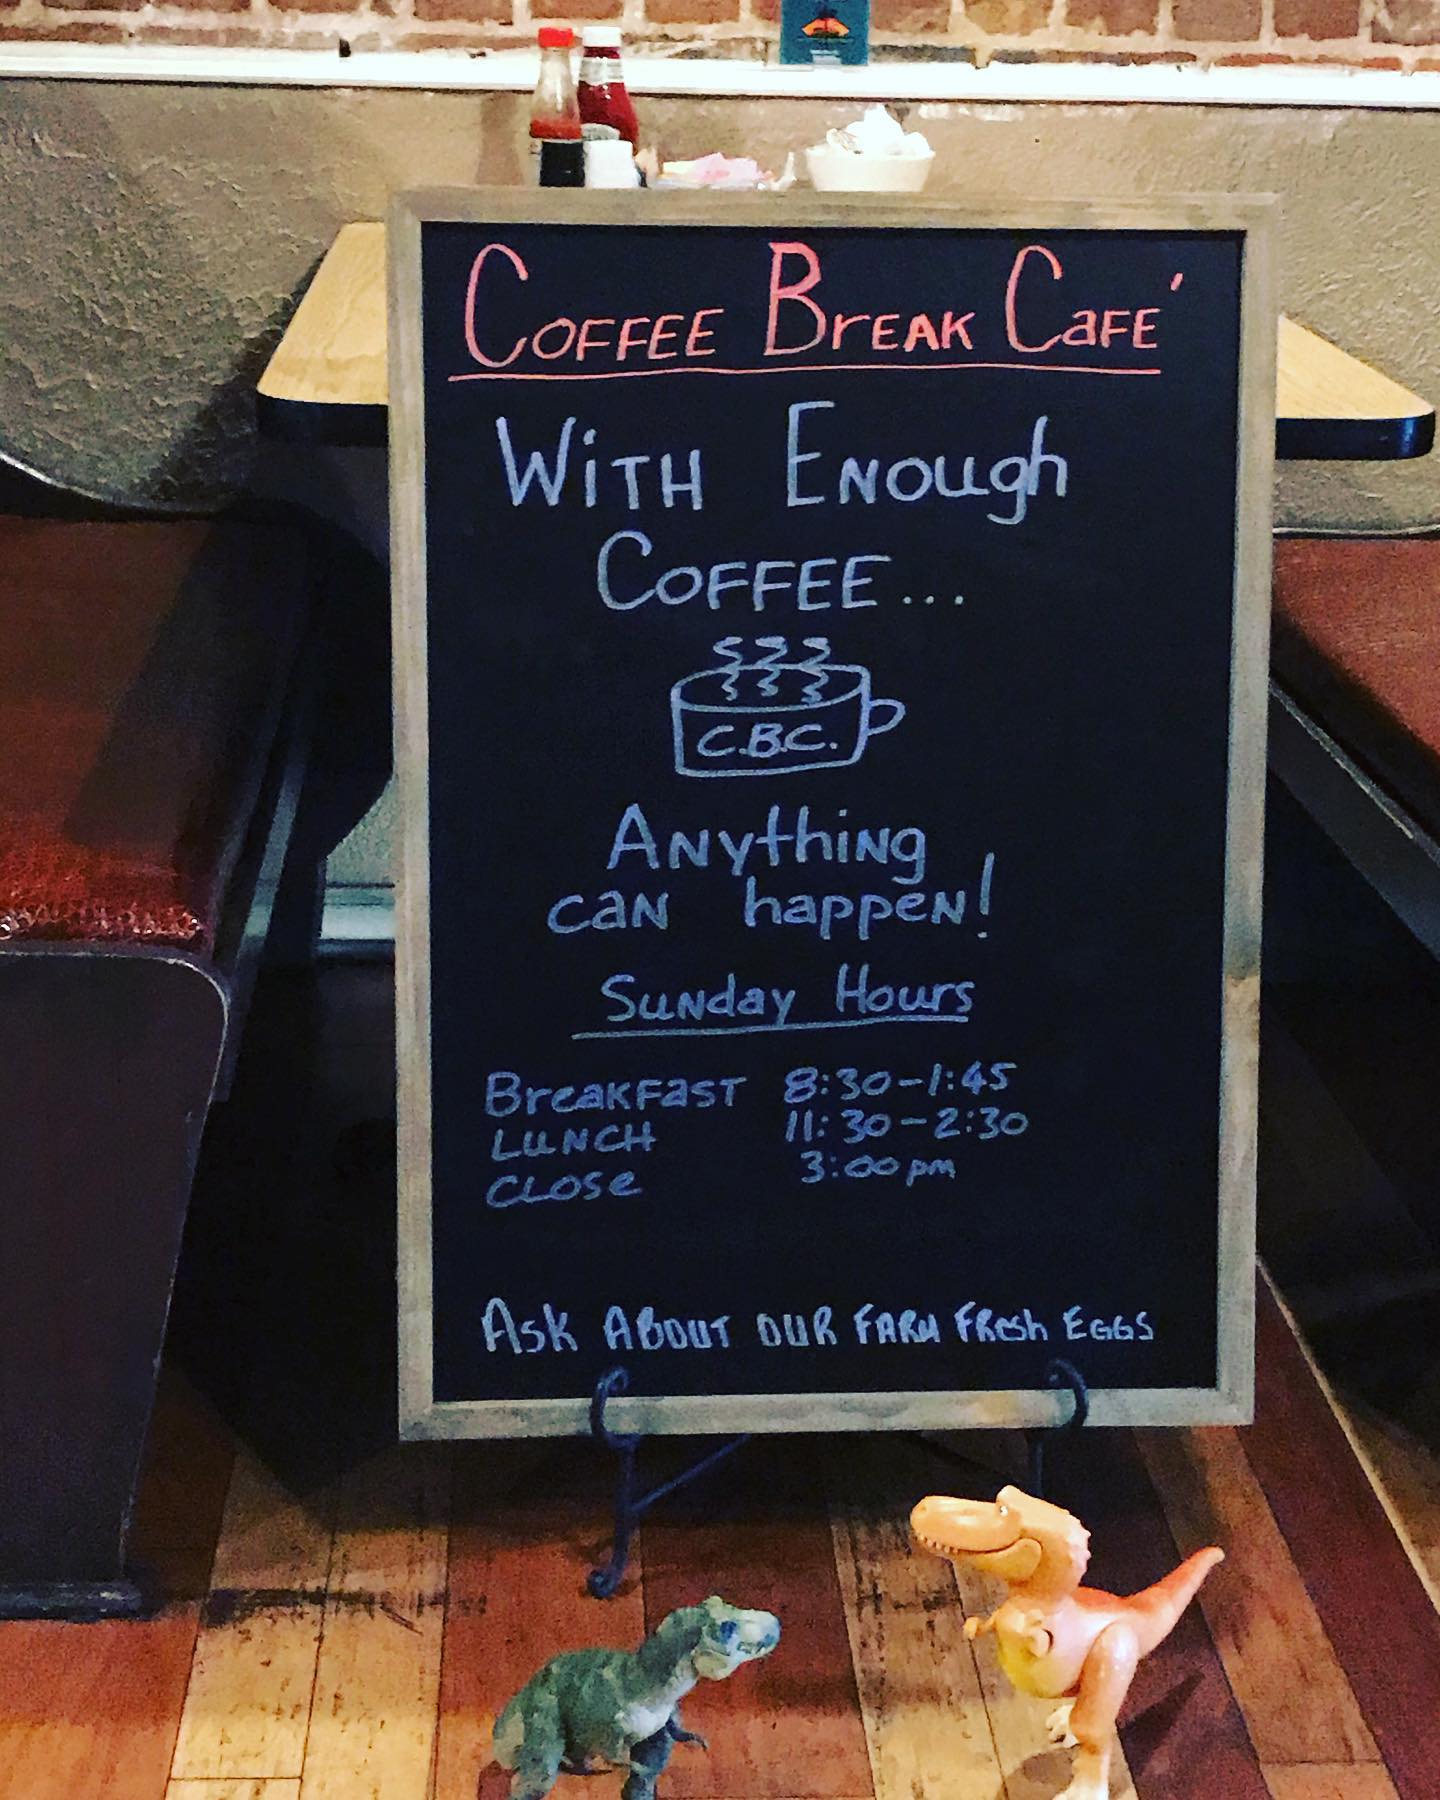 Coffee Break Cafe'
With Enough
Coffee...
C.B.C.
Anything
can happen!
Sunday Hours
Breakfast 8:30-1:45
Lunch 11:30-2:30
Close 3:00pm
Ask About our Farm Fresh Eggs